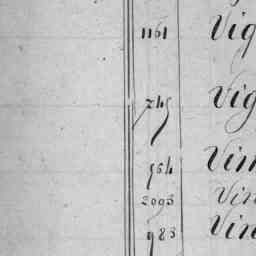 1161 Viq
245 Vig
564 Vim
2093 Vin
983 Vin